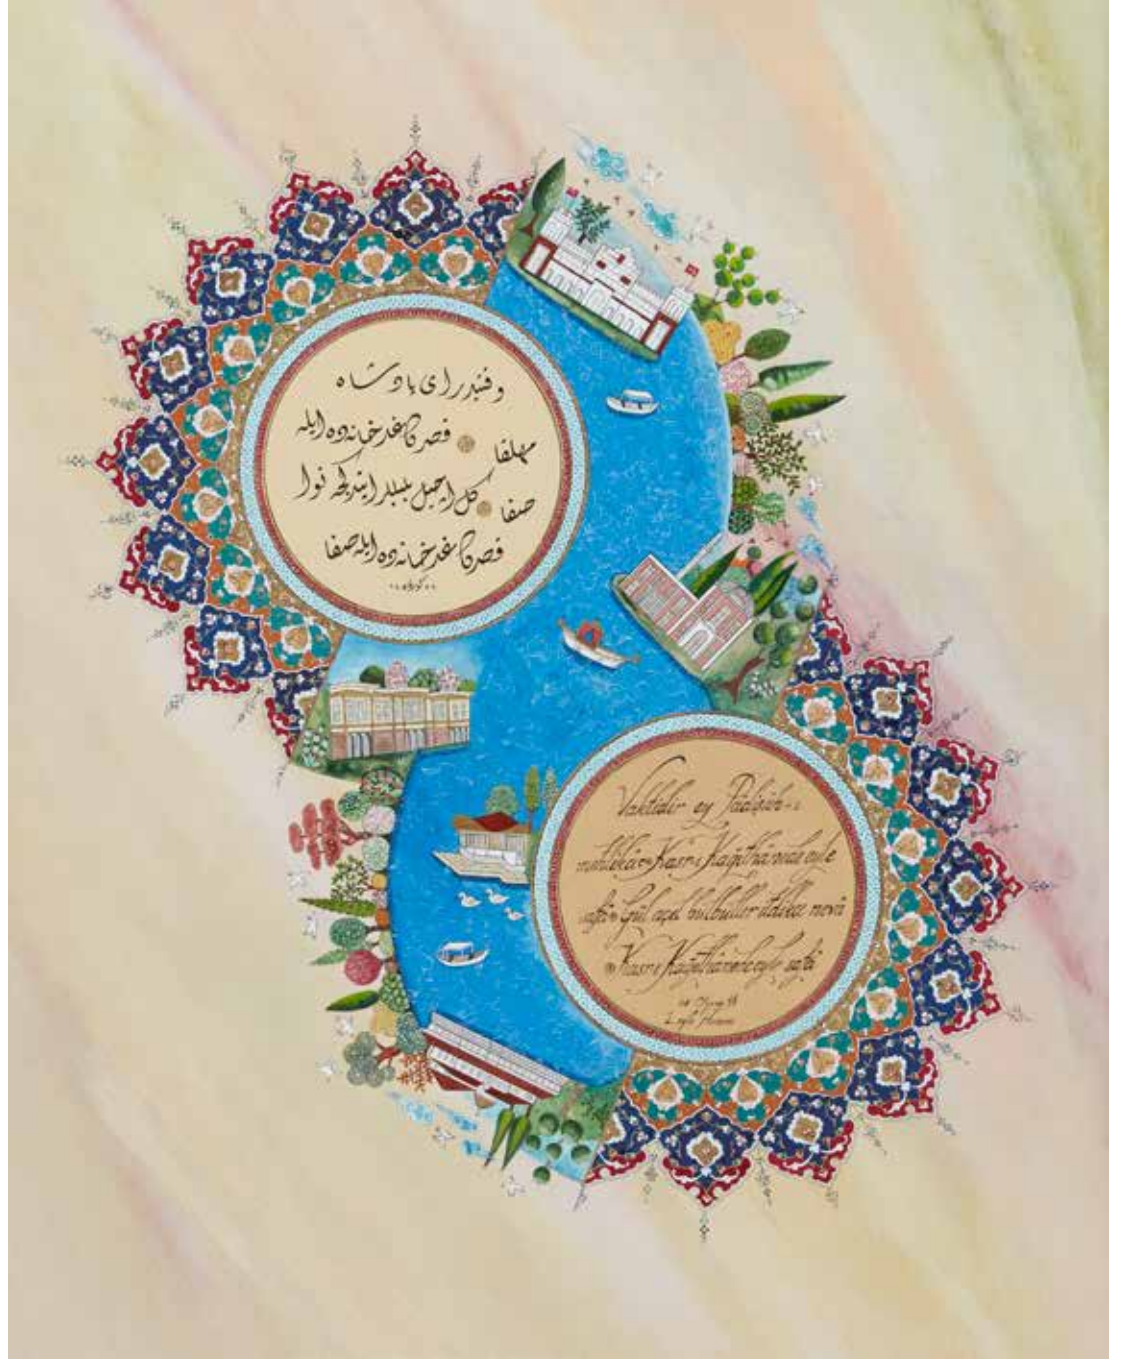 وقتیدر ای پادشاه
مهلقا قصر کاغدخانه‌ده ایله
صفا گل اچیل بلبللر ایتدکجه نوا
قصر کاغدخانه‌ده ایله صفا
Vaktidir ey Pâdişâh-ı
mehlikâ Kasr-ı Kağıthânede eyle
safâ Gül açıl bülbüller itdikçe nevâ
Kasr-ı Kağıthânede eyle safâ